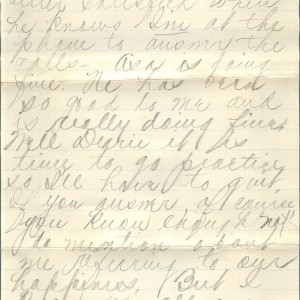 satisfied when
he knows I'm at the
phone to answer the
calls. Asa is doing
fine. He has been
so good to me and
is really doing fine.
Well Dearie it is
time to go practice
so I'll have to quit.
If you answer of course
you know enough "not"
to mention about
me referring to our
happiness. But I